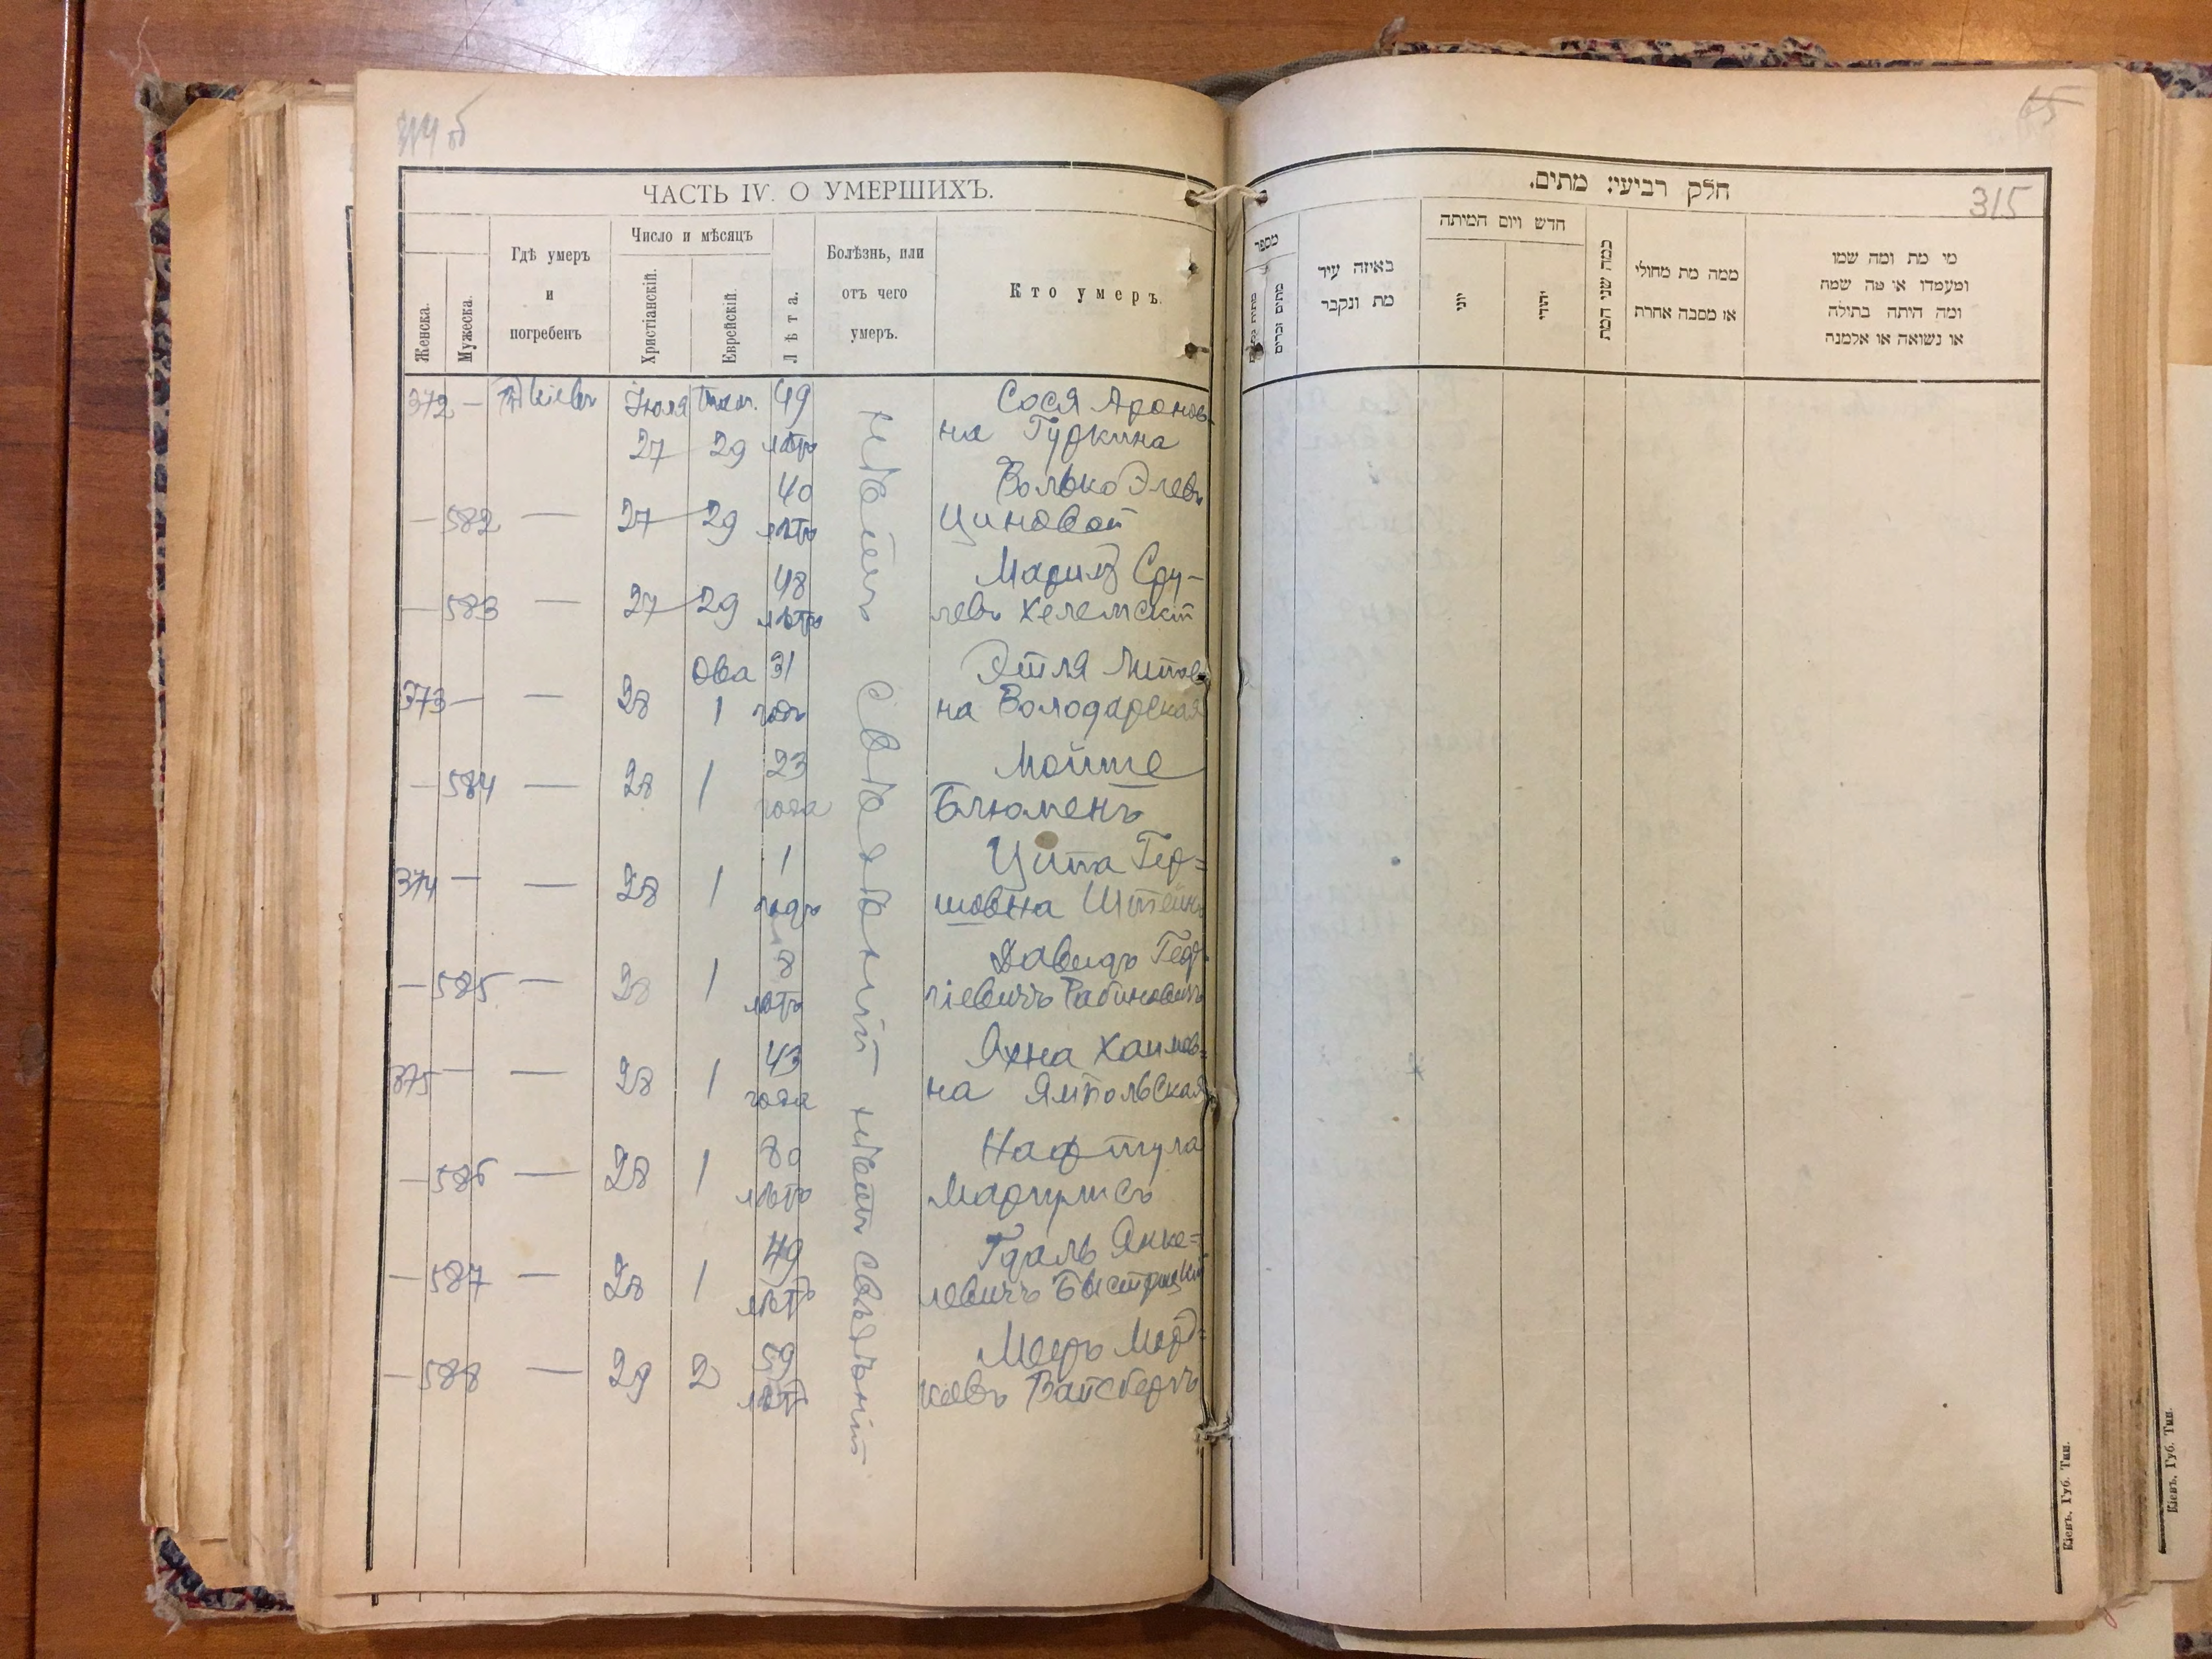 314 об
ЧАСТЬ IV. О УМЕРШИХЪ.
Женска.
Мужеска.
Гдѣ умеръ
и
погребенъ
Число и мѣсяцъ
Христіанскій.
Еврейскій.
Лѣта.
Болѣзнь, или
отъ чего
умеръ.
Кто умеръ.
372 — Кіевъ Іюля Там. 49 Сося Аронов-
27 29 лѣтъ на Гуркина
40 Волько Элевъ
— 582 — 27 29 лѣтъ Циновой
48 Сру-
— 583 — 27 29 лѣтъ левъ Хелемскій
Ова 31 Этля
373 — — 28 1 годъ на Володарская
23 Мойше
— 584 — 28 1 года Блюменъ
1 Ципа Гер=
374 — — 28 1 годъ шовна Штейнъ
8 Давидъ Гед-
— 585 — 28 1 лѣтъ ліевичъ Рабиновичъ
43 Яхна Хаимов=
375 — — 28 1 года на Ямпольская
80 Нафтула
— 586 — 28 1 лѣтъ Маргулисъ
49 Гдаль Янке=
— 587 — 28 1 лѣтъ левичъ Быстрицкій
59 Мееръ Морд=
— 588 — 29 2 лѣтъ ковъ Вайсбергъ
нѣтъ свѣдѣній нѣтъ свѣдѣній
65
315
חלק רביעי: מתים.
מספר
מתים זכרים
באיזה עיר
מת ונקבר
חדש ויום המיתה
יוני
יהודי
כמה שני המת
ממה מת מחולי
או מסבה אחרת
מי מת ומה שמו
ומעמדו או מה שמה
ומה היתה בתולה
או נשואה או אלמנה
Кіевъ, Губ. Тип.
Кіевъ, Губ. Тип.